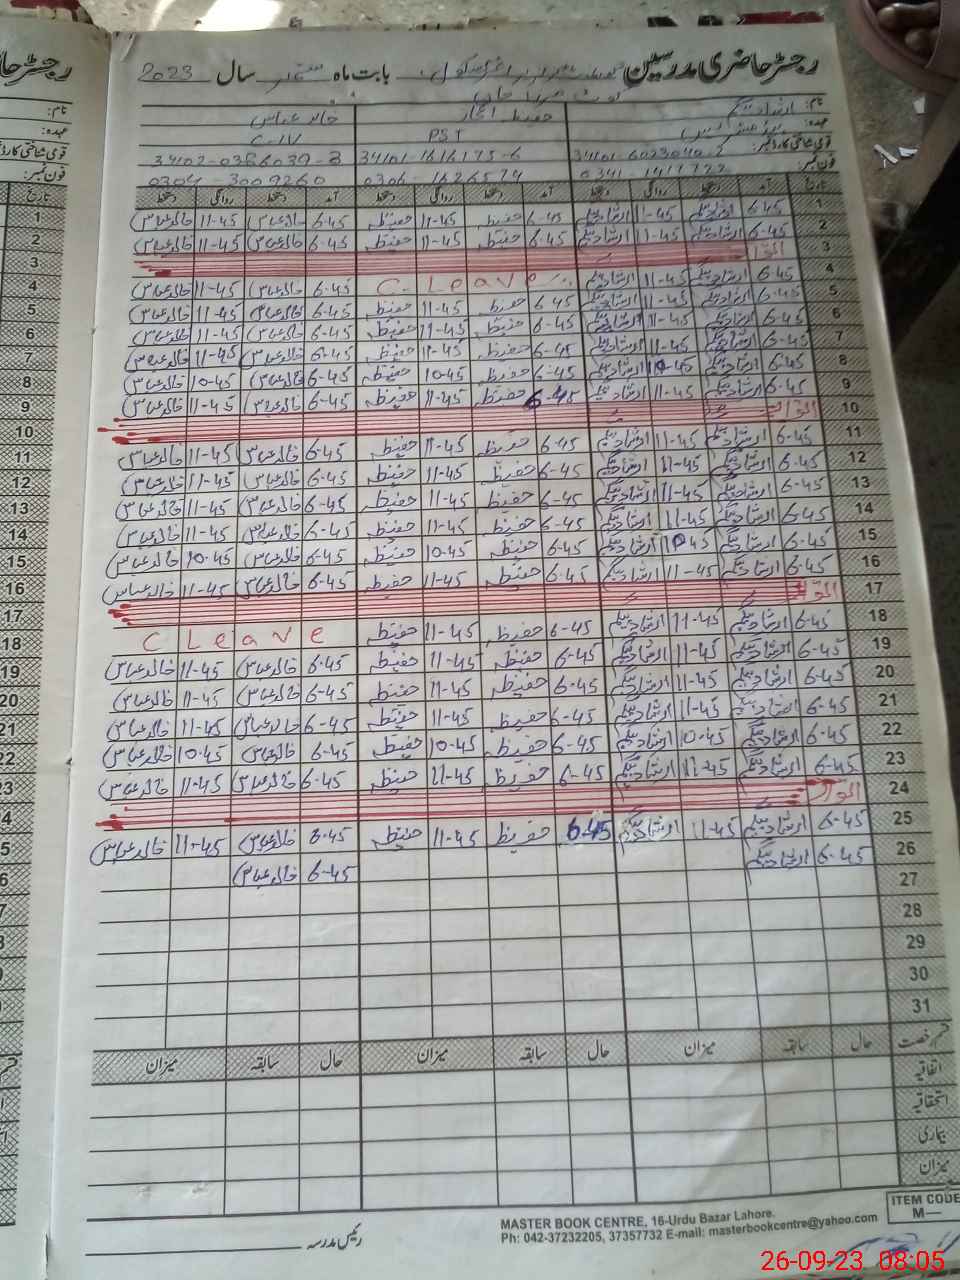 رجسٹر حاضری مدرسین بابت ماہ ستمبر سال 2023
نام: ارشاد بیگم حفیظ خالد عباس
عہدہ: PST C-IV
قومی شناختی کارڈ نمبر: 34101-6023040-2 34101-1616175-6 34102-0386039-3
فون نمبر: 0341-1411722 0306-1626574 0304-3009260
تاریخ آمد دستخط روانگی دستخط آمد دستخط روانگی دستخط آمد دستخط روانگی دستخط
1 6-45 ارشاد بیگم 11-45 ارشاد بیگم 6-45 حفیظ 11-45 حفیظ 6-45 خالد عباس 11-45 خالد عباس
2 6-45 ارشاد بیگم 11-45 ارشاد بیگم 6-45 حفیظ 11-45 حفیظ 6-45 خالد عباس 11-45 خالد عباس
3 اتوار
4 6-45 ارشاد بیگم 11-45 ارشاد بیگم C- Leave 6-45 خالد عباس 11-45 خالد عباس
5 6-45 ارشاد بیگم 11-45 ارشاد بیگم 6-45 حفیظ 11-45 حفیظ 6-45 خالد عباس 11-45 خالد عباس
6 6-45 ارشاد بیگم 11-45 ارشاد بیگم 6-45 حفیظ 11-45 حفیظ 6-45 خالد عباس 11-45 خالد عباس
7 6-45 ارشاد بیگم 11-45 ارشاد بیگم 6-45 حفیظ 11-45 حفیظ 6-45 خالد عباس 11-45 خالد عباس
8 6-45 ارشاد بیگم 10-45 ارشاد بیگم 6-45 حفیظ 10-45 حفیظ 6-45 خالد عباس 10-45 خالد عباس
9 6-45 ارشاد بیگم 11-45 ارشاد بیگم 6-45 حفیظ 11-45 حفیظ 6-45 خالد عباس 11-45 خالد عباس
10 اتوار
11 6-45 ارشاد بیگم 11-45 ارشاد بیگم 6-45 حفیظ 11-45 حفیظ 6-45 خالد عباس 11-45 خالد عباس
12 6-45 ارشاد بیگم 11-45 ارشاد بیگم 6-45 حفیظ 11-45 حفیظ 6-45 خالد عباس 11-45 خالد عباس
13 6-45 ارشاد بیگم 11-45 ارشاد بیگم 6-45 حفیظ 11-45 حفیظ 6-45 خالد عباس 11-45 خالد عباس
14 6-45 ارشاد بیگم 11-45 ارشاد بیگم 6-45 حفیظ 11-45 حفیظ 6-45 خالد عباس 11-45 خالد عباس
15 6-45 ارشاد بیگم 10-45 ارشاد بیگم 6-45 حفیظ 10-45 حفیظ 6-45 خالد عباس 10-45 خالد عباس
16 6-45 ارشاد بیگم 11-45 ارشاد بیگم 6-45 حفیظ 11-45 حفیظ 6-45 خالد عباس 11-45 خالد عباس
17 اتوار
18 6-45 ارشاد بیگم 11-45 ارشاد بیگم 6-45 حفیظ 11-45 حفیظ C Leave
19 6-45 ارشاد بیگم 11-45 ارشاد بیگم 6-45 حفیظ 11-45 حفیظ 6-45 خالد عباس 11-45 خالد عباس
20 6-45 ارشاد بیگم 11-45 ارشاد بیگم 6-45 حفیظ 11-45 حفیظ 6-45 خالد عباس 11-45 خالد عباس
21 6-45 ارشاد بیگم 11-45 ارشاد بیگم 6-45 حفیظ 11-45 حفیظ 6-45 خالد عباس 11-45 خالد عباس
22 6-45 ارشاد بیگم 10-45 ارشاد بیگم 6-45 حفیظ 10-45 حفیظ 6-45 خالد عباس 10-45 خالد عباس
23 6-45 ارشاد بیگم 11-45 ارشاد بیگم 6-45 حفیظ 11-45 حفیظ 6-45 خالد عباس 11-45 خالد عباس
24 اتوار
25 6-45 ارشاد بیگم 11-45 ارشاد بیگم 6-45 حفیظ 11-45 حفیظ 6-45 خالد عباس 11-45 خالد عباس
26 6-45 ارشاد بیگم 6-45 خالد عباس
27
28
29
30
31
قسم رخصت حال سابقہ میزان حال سابقہ میزان حال سابقہ میزان
اتفاقیہ
استحقاقیہ
بیماری
میزان
رئیس مدرسہ
MASTER BOOK CENTRE, 16-Urdu Bazar Lahore.
Ph: 042-37232205, 37357732 E-mail: masterbookcentre@yahoo.com
ITEM CODE
M—
26-09-23 08:05